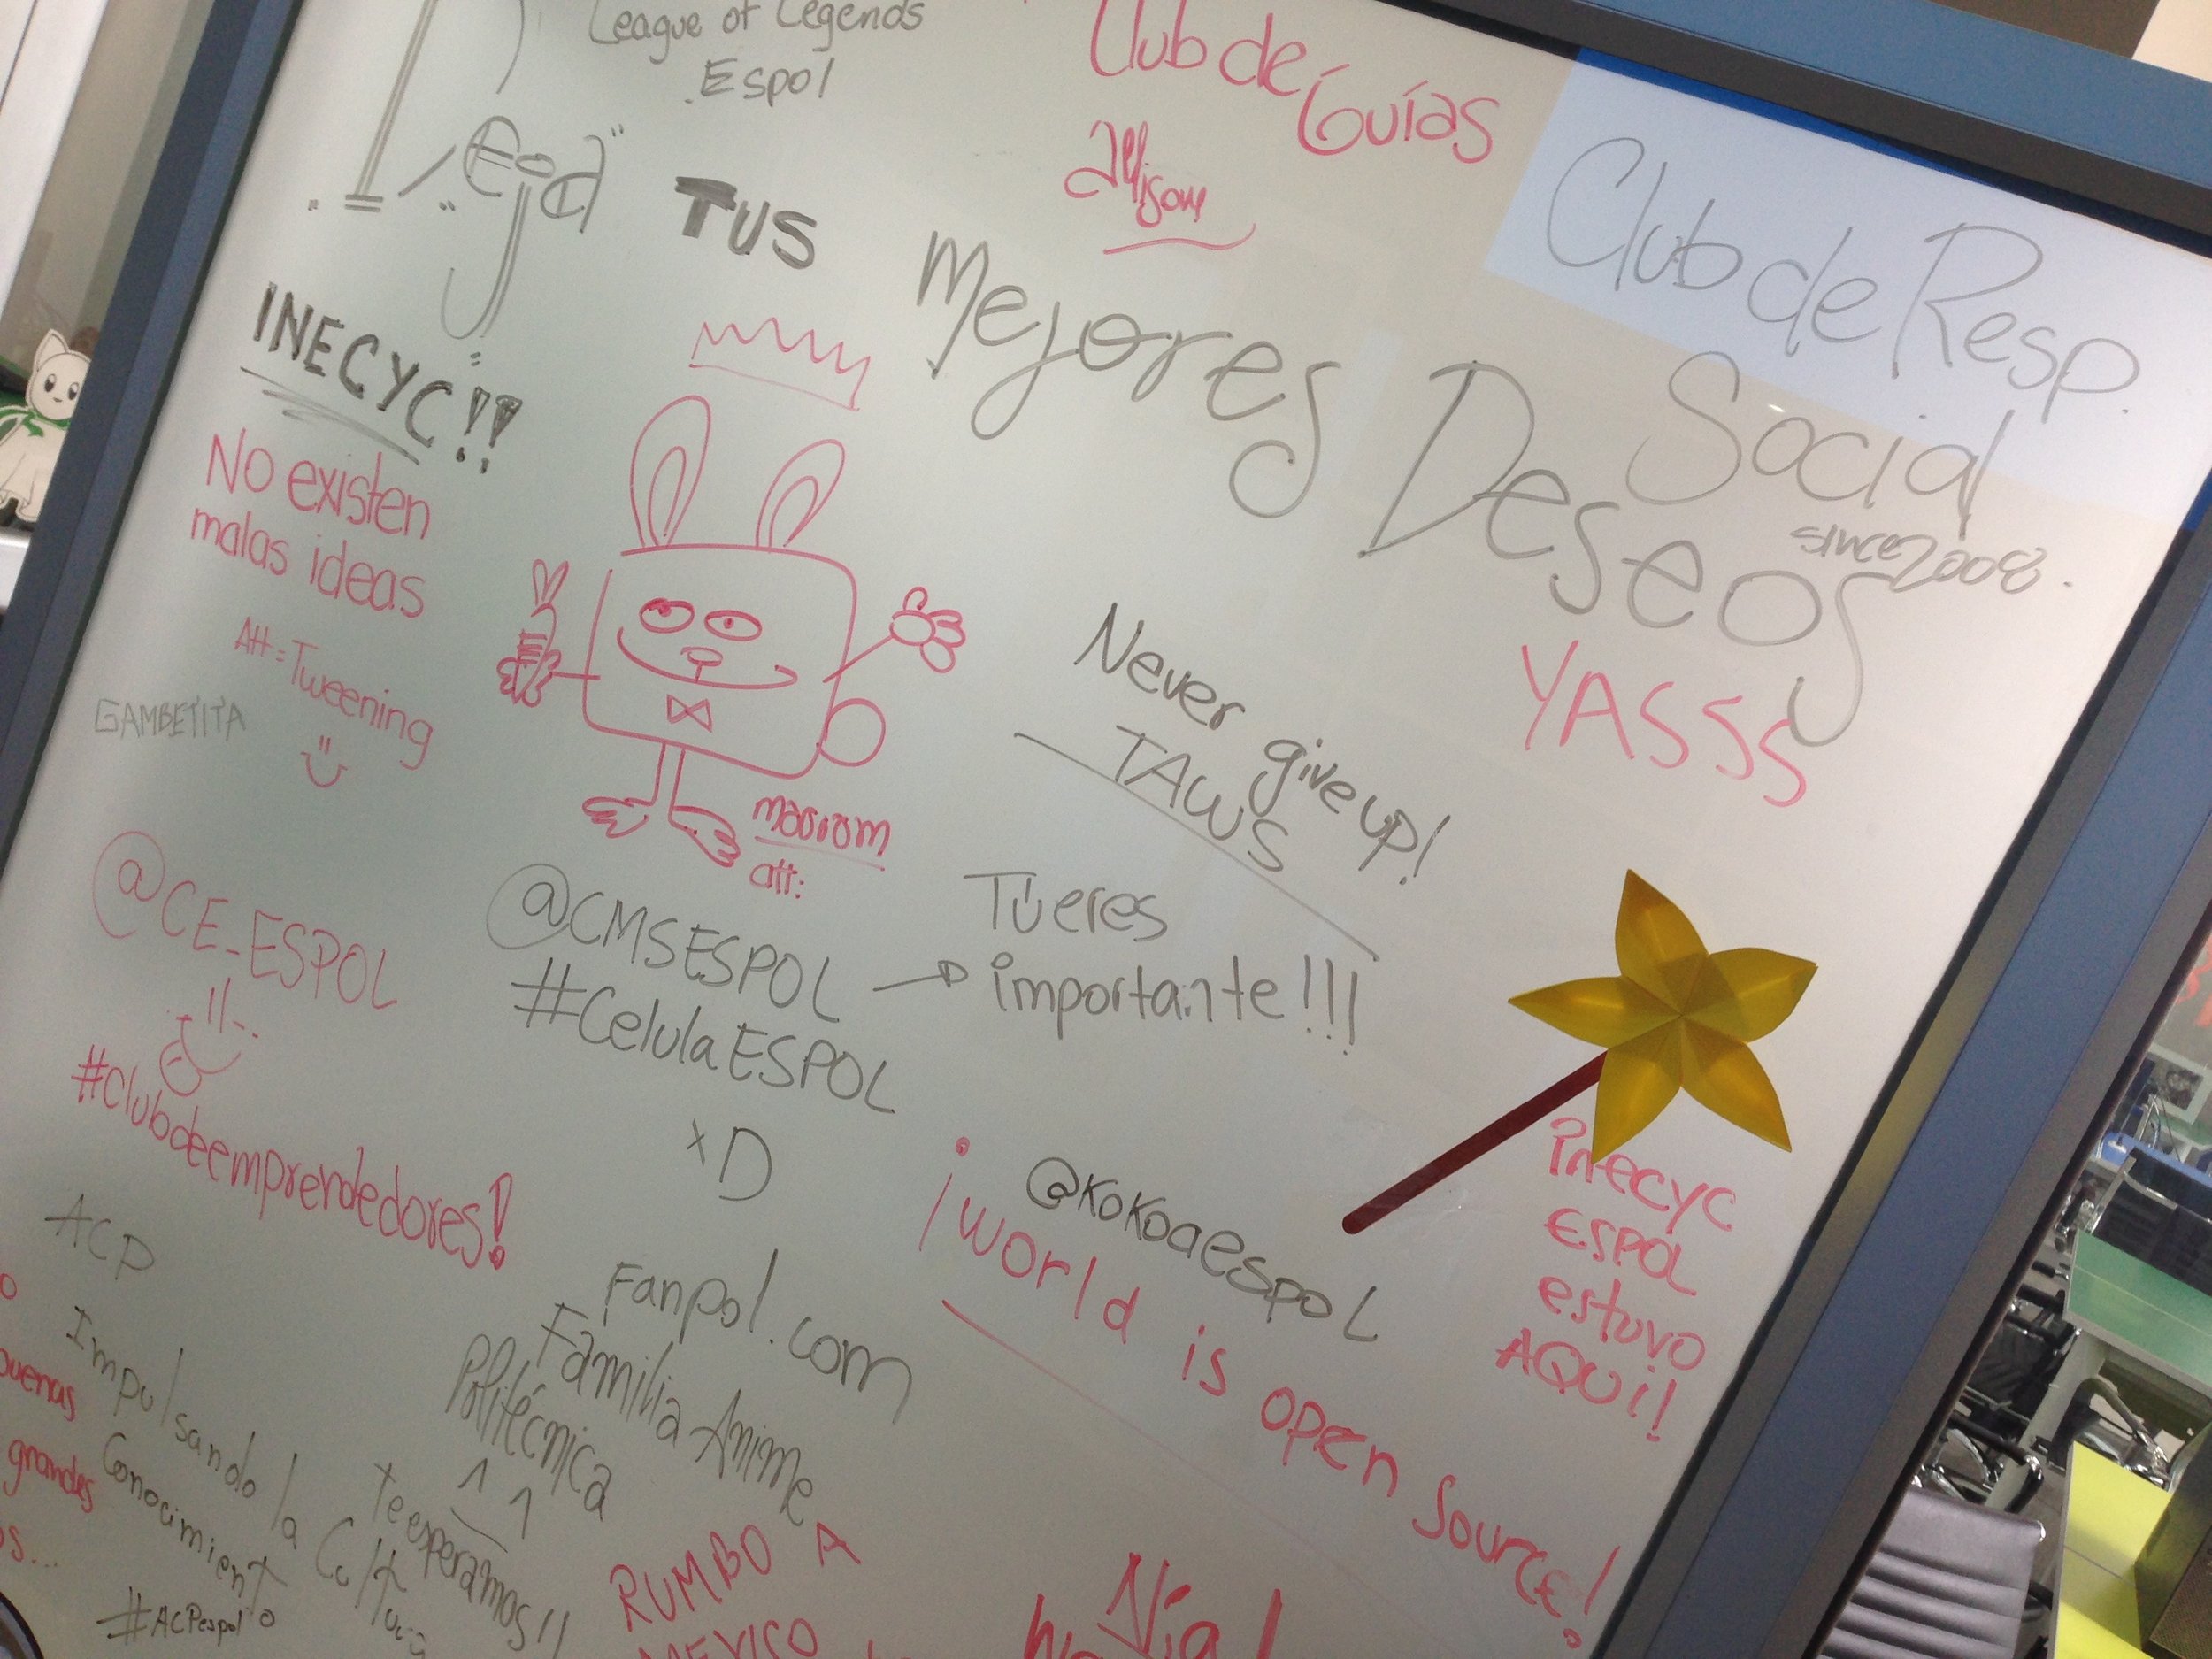 League of Legends
Espol
Club de
Guías
Allison
Deja TUS Mejores Deseos
Club de Resp.
Social
since 2008.
YASSS
INECYC!!
No existen
malas ideas
Att: Tweening
GAMBETITA
att:
Never give up!
TAWS
@CE_ESPOL
#Clubdeemprendedores!
@CMSESPOL
#CelulaESPOL
xD
Tú eres
importante!!!
@KoKoaespoL
¡world is open source!
inecyc
ESPOL
estuvo
AQUí!
ACP
Impulsando la
Conocimiento
#ACPespol
buenas
grandes
Fanpol.com
Familia Anime
Politécnica
te esperamos!!
RUMBO A
MEXICO